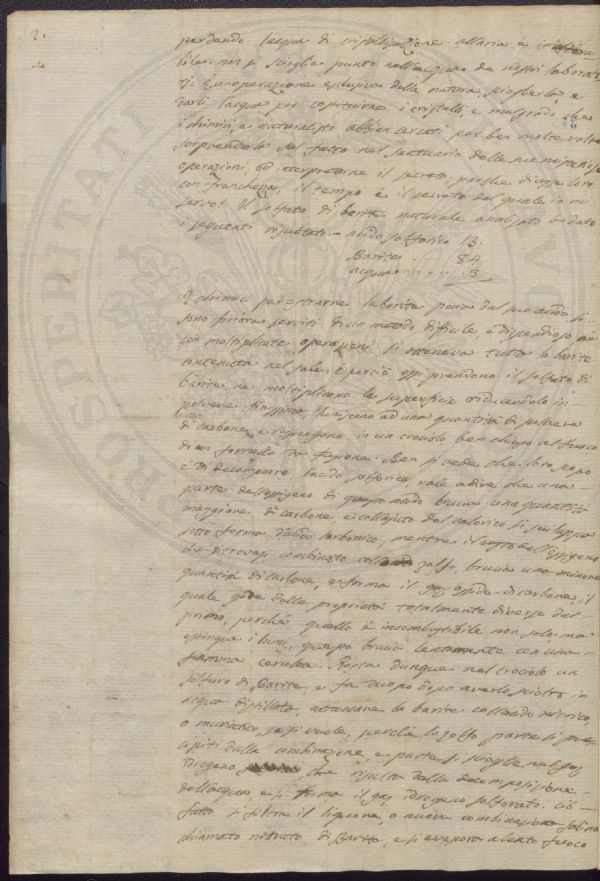 2.
perdendo l'acqua di cristallizazione. all'aria è inaltera
bile. non si scioglie punto nell'acqua de nostri laborato
rj. È un operazione esclusiva della natura, sciogliarlo e
darli l'acqua per costituirne i cristalli, e malgrado che
i chimici, e naturalisti abbian cercati per ben molte volte
sorprenderla sul fatto nel santuario delle sue misteriose
operazioni, ed interpretarne il secreto; parche dicesse loro
con franchezza, il tempo è il secreto del quale io mi
servo! Il solfato di barite naturale analizato à dato
i seguenti risultati. acido solforico 13.
Barite 84
acqua 3
I chimici per estrarne la barite pura dal suo acido si
sono finora serviti di un metodo dificile, e dispendioso, nè
con moltiplicate operazioni si otteneva tutta la barite
contenuta nel sale. È perciò essi prendono il solfato di
barite, ne moltiplicano le superficie riducendolo in
polvere finissima, l'uniscono ad una quantità di polvere
di carbone, e l'espongono in un crociolo ben chiuso al fuoco
di un fornello di fusione. Ben si vede che loro scopo
è di decomporre l'acido solforico vale a dire che una
parte dell'ossigeno di questo acido brucia una quantità
maggiore di carbone e collajuto del calorico si sviluppa
sotto forma d'acido carbonico, mentre il resto dell'ossigeno
che ritrovasi combinato collo zolfo, brucia una minore
quantità di carbone, e forma il gas ossido di carbone, il
quale gode delle proprietà totalmente diverse dal
primo, perchè quello è incombustibile non solo, ma
estingue i lumi, questo brucia lentamente con una
fiamma cerulea. Resta dunque nel crociolo un
solfuro di Barite, e fa duopo dopo averlo sciolto in
acqua distillata, attaccare la barite coll'acido nitrico,
o muriatico, se si vuole, perchè lo zolfo parte si pre
cipiti dalla combinazione, e parte si scioglie nel gas
idrogeno che risulta dalla decomposizione
dell'acqua e si forma il gas idrogeno solforato. Ciò
fatto si filtra il liquido, o nuova combinazione salina
chiamato nitrato di Barite, e si evapora a lento fuoco